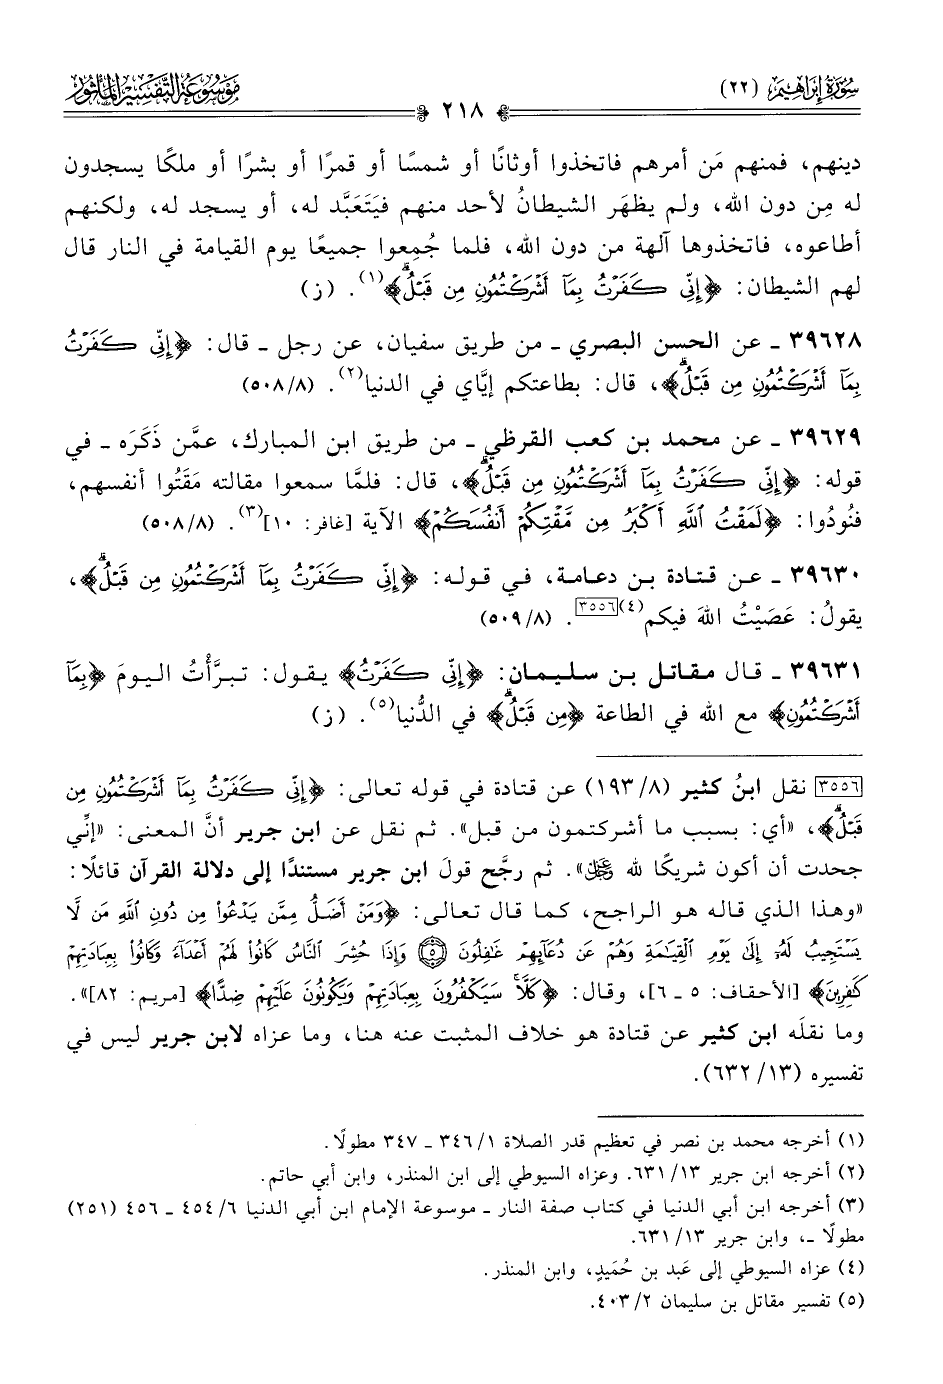 سُورَةُ إِبْرَاهِيم (٢٢)
٢١٨
مَوْسُوعَةُ التَّفْسِيرِ المَأْثُور
دينهم، فمنهم مَن أمرهم فاتخذوا أوثانًا أو شمسًا أو قمرًا أو بشرًا أو ملكًا يسجدون
له مِن دون الله، ولم يظهَر الشيطانُ لأحد منهم فيَتَعَبَّد له، أو يسجد له، ولكنهم
أطاعوه، فاتخذوها آلهة من دون الله، فلما جُمِعوا جميعًا يوم القيامة في النار قال
لهم الشيطان: ﴿إِنِّي كَفَرْتُ بِمَآ أَشْرَكْتُمُونِ مِن قَبْلُۗ﴾(١). (ز)
٣٩٦٢٨ ـ عن الحسن البصري ـ من طريق سفيان، عن رجل ـ قال: ﴿إِنِّي كَفَرْتُ
بِمَآ أَشْرَكْتُمُونِ مِن قَبْلُۗ﴾، قال: بطاعتكم إيَّاي في الدنيا(٢). (٥٠٨/٨)
٣٩٦٢٩ ـ عن محمد بن كعب القرظي ـ من طريق ابن المبارك، عمَّن ذَكَرَه ـ في
قوله: ﴿إِنِّي كَفَرْتُ بِمَآ أَشْرَكْتُمُونِ مِن قَبْلُۗ﴾، قال: فلمَّا سمعوا مقالته مَقَتُوا أنفسهم،
فنُودُوا: ﴿لَمَقْتُ ٱللَّهِ أَكْبَرُ مِن مَّقْتِكُمْ أَنفُسَكُمْ﴾ الآية [غافر: ١٠](٣). (٥٠٨/٨)
٣٩٦٣٠ ـ عن قتادة بن دعامة، في قوله: ﴿إِنِّي كَفَرْتُ بِمَآ أَشْرَكْتُمُونِ مِن قَبْلُۗ﴾،
يقولُ: عَصَيْتُ اللهَ فيكم(٤)[٣٥٥٦]. (٥٠٩/٨)
٣٩٦٣١ ـ قال مقاتل بن سليمان: ﴿إِنِّي كَفَرْتُ﴾ يقول: تبرَّأتُ اليومَ ﴿بِمَآ
أَشْرَكْتُمُونِ﴾ مع الله في الطاعة ﴿مِن قَبْلُۗ﴾ في الدُّنيا(٥). (ز)
[٣٥٥٦] نقل ابنُ كثير (١٩٣/٨) عن قتادة في قوله تعالى: ﴿إِنِّي كَفَرْتُ بِمَآ أَشْرَكْتُمُونِ مِن
قَبْلُۗ﴾، «أي: بسبب ما أشركتمون من قبل». ثم نقل عن ابن جرير أنَّ المعنى: «إنِّي
جحدت أن أكون شريكًا لله ﷻ». ثم رجَّح قولَ ابن جرير مستندًا إلى دلالة القرآن قائلًا:
«وهذا الذي قاله هو الراجح، كما قال تعالى: ﴿وَمَنْ أَضَلُّ مِمَّن يَدْعُوا۟ مِن دُونِ ٱللَّهِ مَن لَّا
يَسْتَجِيبُ لَهُۥٓ إِلَىٰ يَوْمِ ٱلْقِيَٰمَةِ وَهُمْ عَن دُعَآئِهِمْ غَٰفِلُونَ ۝٥ وَإِذَا حُشِرَ ٱلنَّاسُ كَانُوا۟ لَهُمْ أَعْدَآءً وَكَانُوا۟ بِعِبَادَتِهِمْ
كَٰفِرِينَ﴾ [الأحقاف: ٥ ـ ٦]، وقال: ﴿كَلَّاۚ سَيَكْفُرُونَ بِعِبَادَتِهِمْ وَيَكُونُونَ عَلَيْهِمْ ضِدًّا﴾ [مريم: ٨٢]».
وما نقلَه ابن كثير عن قتادة هو خلاف المثبت عنه هنا، وما عزاه لابن جرير ليس في
تفسيره (١٣/ ٦٣٢).
(١) أخرجه محمد بن نصر في تعظيم قدر الصلاة ١/ ٣٤٦ ـ ٣٤٧ مطولًا.
(٢) أخرجه ابن جرير ١٣/ ٦٣١. وعزاه السيوطي إلى ابن المنذر، وابن أبي حاتم.
(٣) أخرجه ابن أبي الدنيا في كتاب صفة النار ـ موسوعة الإمام ابن أبي الدنيا ٦/ ٤٥٤ ـ ٤٥٦ (٢٥١)
مطولًا ـ، وابن جرير ١٣/ ٦٣١.
(٤) عزاه السيوطي إلى عَبد بن حُمَيدٍ، وابن المنذر.
(٥) تفسير مقاتل بن سليمان ٢/ ٤٠٣.